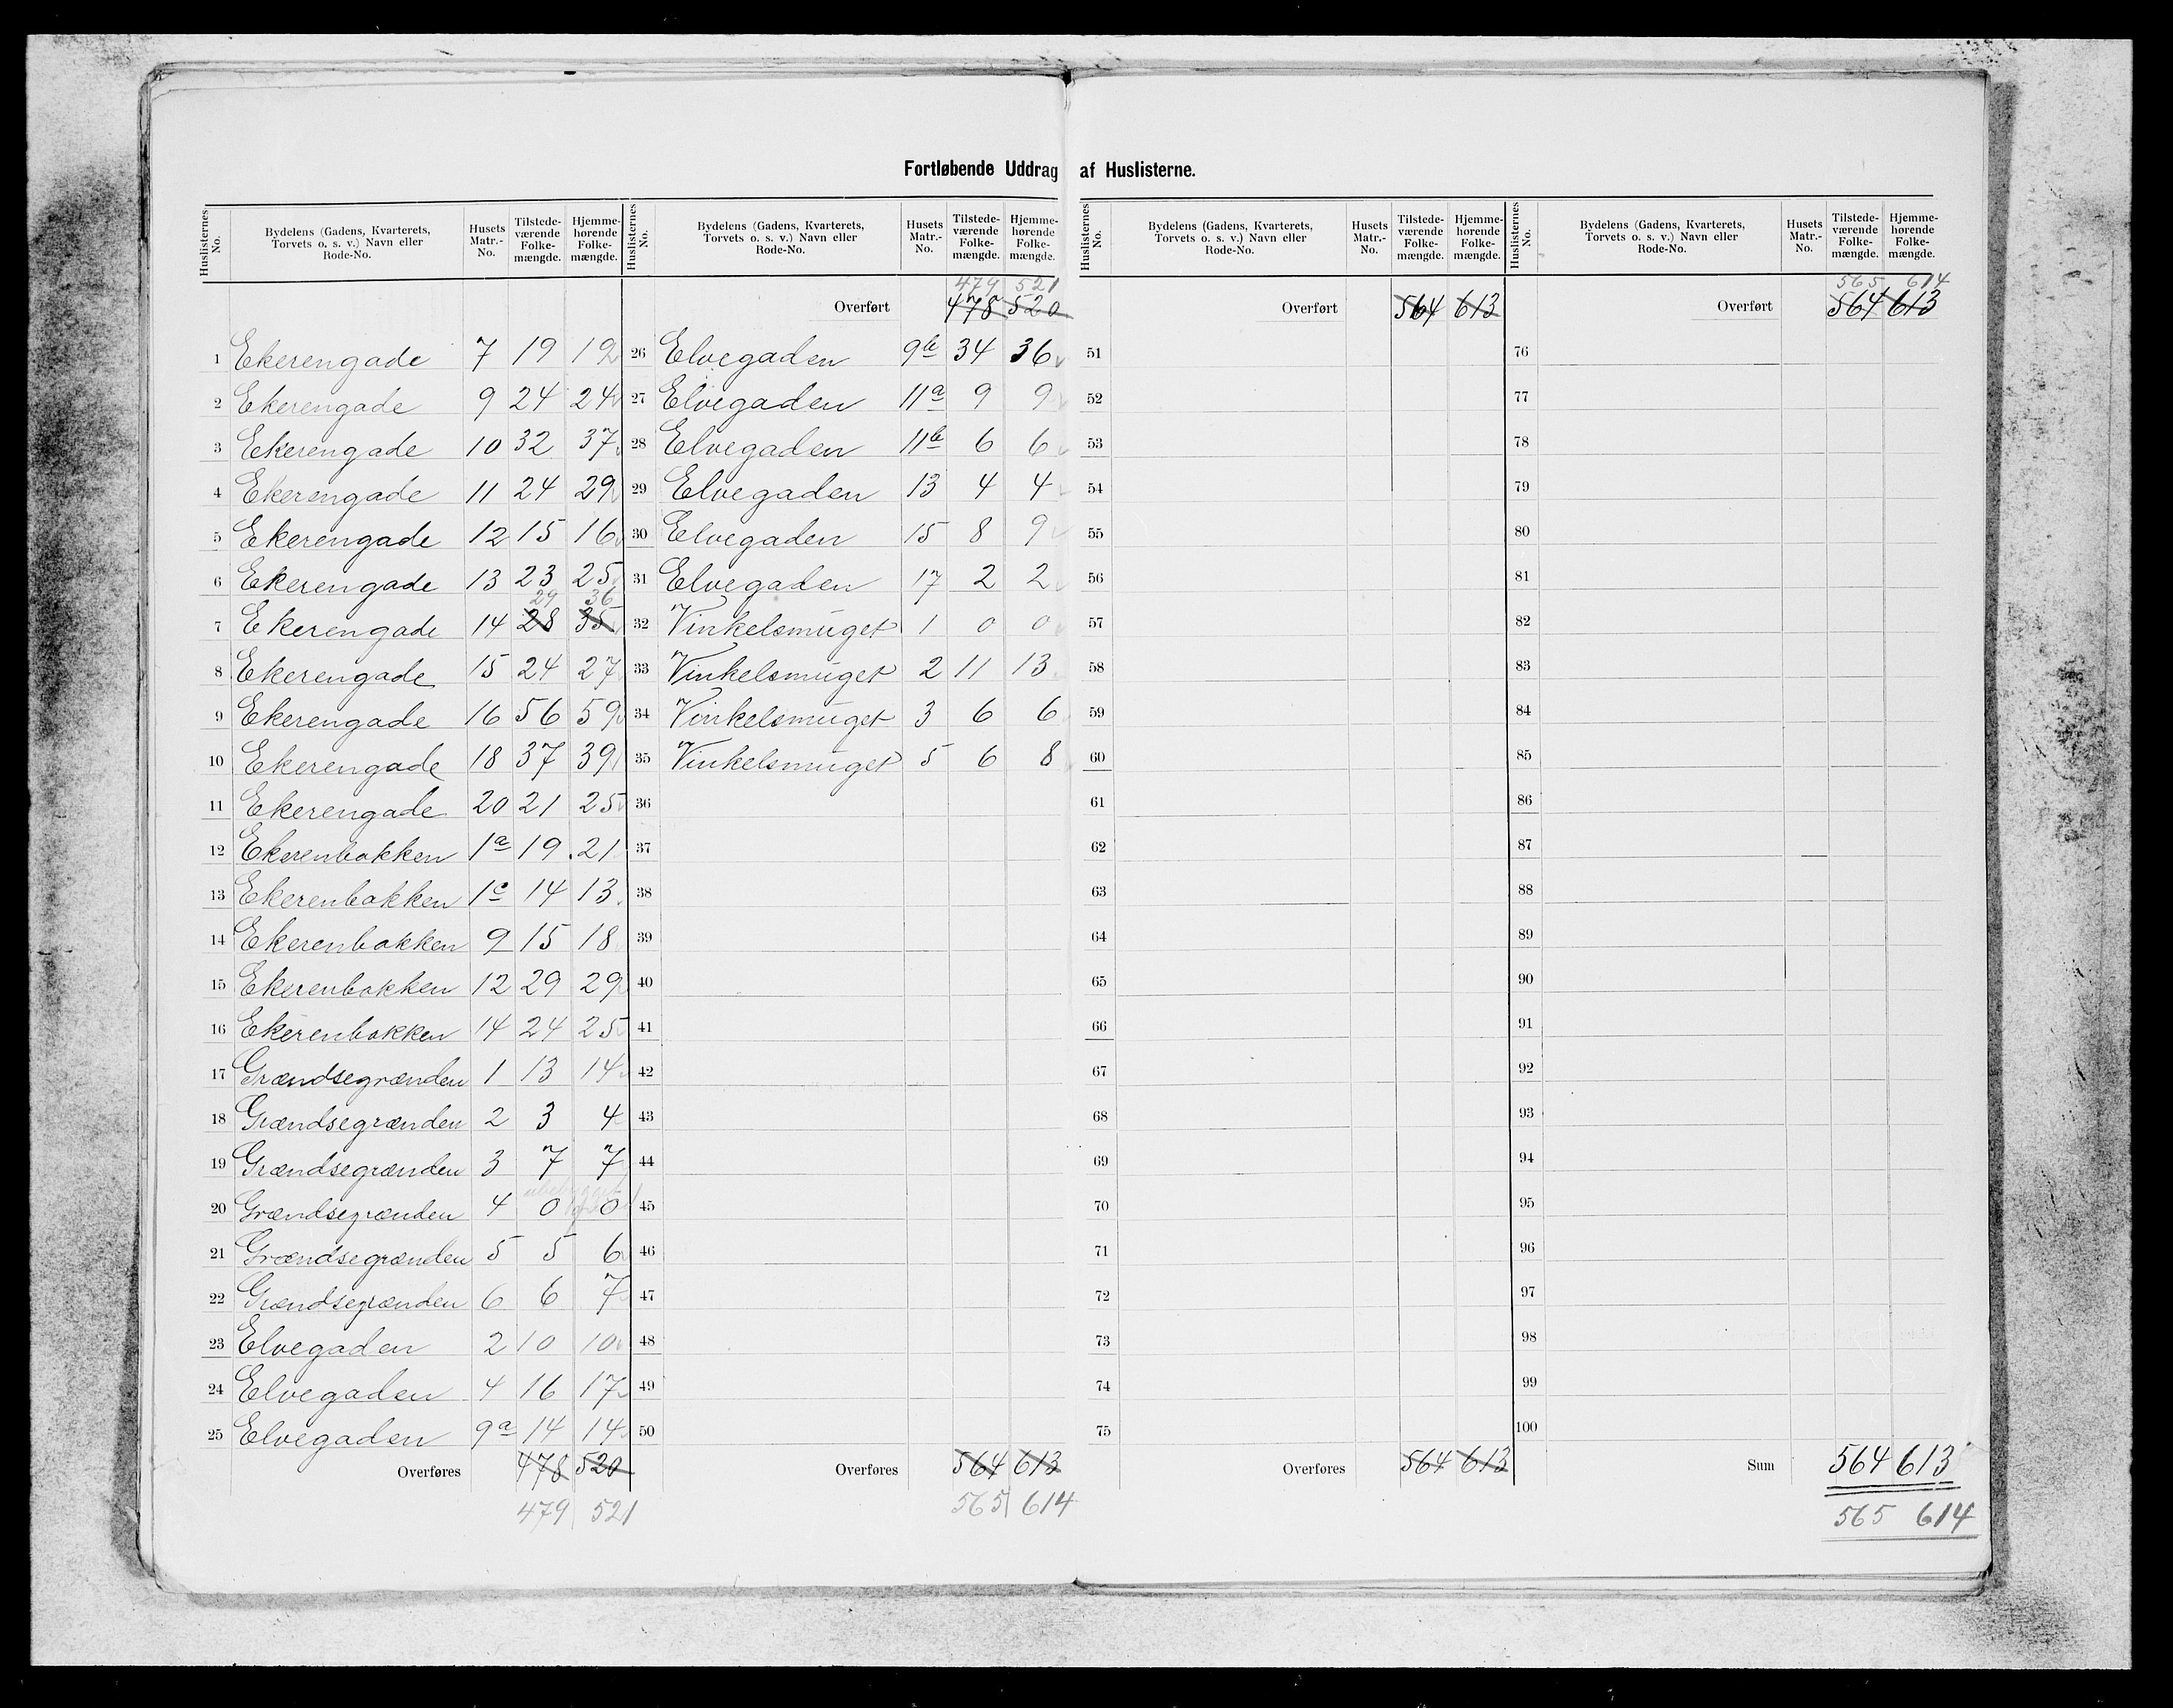 Fortløbende Uddrag af Huslisterne.
Huslisternes No. | Bydelens (Gadens, Kvarterets, Torvets o. s. v.) Navn eller Rode-No. | Husets Matr.-No. | Tilstede-værende Folke-mængde. | Hjemme-hørende Folke-mængde.
1 Ekerengade 7 19 19
2 Ekerengade 9 24 24
3 Ekerengade 10 32 37
4 Ekerengade 11 24 29
5 Ekerengade 12 15 16
6 Ekerengade 13 23 25
29 36
7 Ekerengade 14 28 35
8 Ekerengade 15 24 27
9 Ekerengade 16 56 59
10 Ekerengade 18 37 39
11 Ekerengade 20 21 25
12 Ekerenbakken 1a 19 21
13 Ekerenbakken 1c 14 13
14 Ekerenbakken 9 15 18
15 Ekerenbakken 12 29 29
16 Ekerenbakken 14 24 25
17 Grændsegrænden 1 13 14
18 Grændsegrænden 2 3 4
19 Grændsegrænden 3 7 7
20 Grændsegrænden 4 0 0
21 Grændsegrænden 5 5 6
22 Grændsegrænden 6 6 7
23 Elvegaden 2 10 10
24 Elvegaden 4 16 17
25 Elvegaden 9a 14 14
Overføres 478 520
479 521
Huslisternes No. | Bydelens (Gadens, Kvarterets, Torvets o. s. v.) Navn eller Rode-No. | Husets Matr.-No. | Tilstede-værende Folke-mængde. | Hjemme-hørende Folke-mængde.
479 521
Overført 478 520
26 Elvegaden 9b 34 36
27 Elvegaden 11a 9 9
28 Elvegaden 11b 6 6
29 Elvegaden 13 4 4
30 Elvegaden 15 8 9
31 Elvegaden 17 2 2
32 Vinkelsmuget 1 0 0
33 Vinkelsmuget 2 11 13
34 Vinkelsmuget 3 6 6
35 Vinkelsmuget 5 6 8
36
37
38
39
40
41
42
43
44
45
46
47
48
49
50
Overføres 564 613
565 614
Huslisternes No. | Bydelens (Gadens, Kvarterets, Torvets o. s. v.) Navn eller Rode-No. | Husets Matr.-No. | Tilstede-værende Folke-mængde. | Hjemme-hørende Folke-mængde.
Overført 564 613
51
52
53
54
55
56
57
58
59
60
61
62
63
64
65
66
67
68
69
70
71
72
73
74
75
Overføres 564 613
Huslisternes No. | Bydelens (Gadens, Kvarterets, Torvets o. s. v.) Navn eller Rode-No. | Husets Matr.-No. | Tilstede-værende Folke-mængde. | Hjemme-hørende Folke-mængde.
565 614
Overført 564 613
76
77
78
79
80
81
82
83
84
85
86
87
88
89
90
91
92
93
94
95
96
97
98
99
100
Sum 564 613
565 614